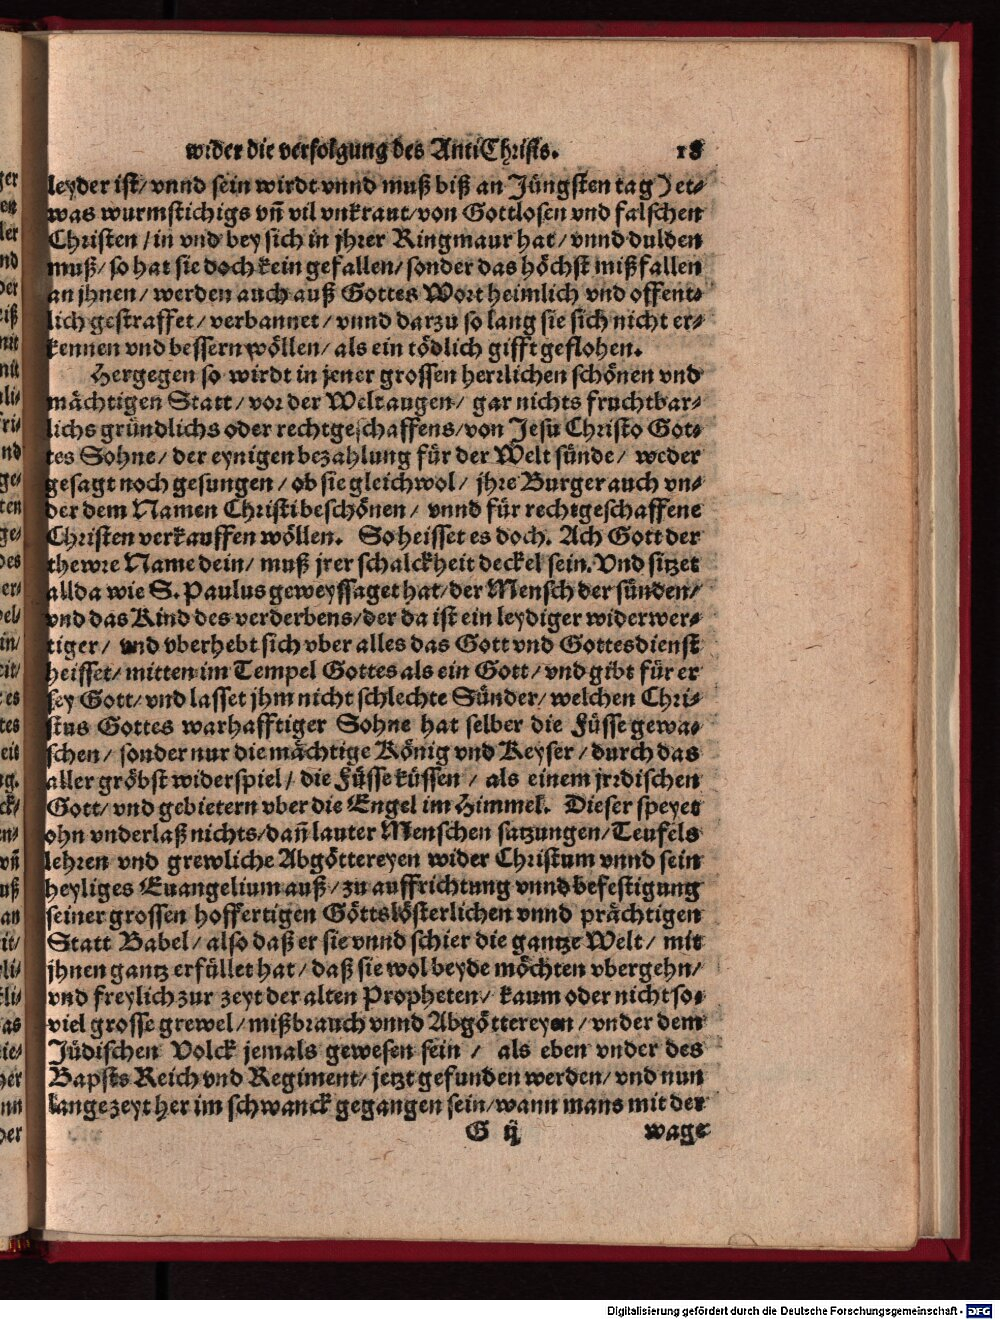 wider die verfolgung des AntiChrists. 18
leyder ist/ vnnd sein wirdt vnnd muß biß an Jüngsten tag) et-
was wurmstichigs vñ vil vnkraut/ von Gottlosen vnd falschen
Christen/ in vnd bey sich in jhrer Ringmaur hat/ vnnd dulden
muß/ so hat sie doch kein gefallen/ sonder das höchst mißfallen
an jhnen/ werden auch auß Gottes Wort heimlich vnd offent-
lich gestraffet/ verbannet/ vnnd darzu so lang sie sich nicht er-
kennen vnd bessern wöllen/ als ein tödlich gifft geflohen.
Hergegen so wirdt in jener grossen herrlichen schönen vnd
mächtigen Statt/ vor der Welt augen/ gar nichts fruchtbar-
lichs gründlichs oder rechtgeschaffens/ von Jesu Christo Got-
tes Sohne/ der eynigen bezahlung für der Welt sünde/ weder
gesagt noch gesungen/ ob sie gleichwol/ jhre Burger auch vn-
der dem Namen Christi beschönen/ vnnd für rechtgeschaffene
Christen verkauffen wöllen. So heisset es doch. Ach Gott der
thewre Name dein/ muß jrer schalckheit deckel sein. Vnd sitzet
allda wie S. Paulus geweyssaget hat/ der Mensch der sünden/
vnd das Kind des verderbens/ der da ist ein leydiger widerwer-
tiger/ vnd vberhebt sich vber alles das Gott vnd Gottesdienst
heisset/ mitten im Tempel Gottes als ein Gott/ vnd gibt für er
sey Gott/ vnd lasset jhm nicht schlechte Sünder/ welchen Chri-
stus Gottes warhafftiger Sohne hat selber die Füsse gewa-
schen/ sonder nur die mächtige König vnd Keyser/ durch das
aller gröbst widerspiel/ die Füsse küssen/ als einem jrrdischen
Gott/ vnd gebietern vber die Engel im Himmel. Dieser speyet
ohn vnderlaß nichts/ dañ lauter Menschen satzungen/ Teufels
lehren vnd grewliche Abgöttereyen wider Christum vnnd sein
heyliges Euangelium auß/ zu auffrichtung vnnd befestigung
seiner grossen hoffertigen Göttslösterlichen vnnd prächtigen
Statt Babel/ also daß er sie vnnd schier die gantze Welt/ mit
jhnen gantz erfüllet hat/ daß sie wol beyde möchten vbergehn/
vnd freylich zur zeyt der alten Propheten/ kaum oder nicht so-
viel grosse grewel/ mißbrauch vnnd Abgöttereyen/ vnder dem
Jüdischen Volck jemals gewesen sein/ als eben vnder des
Bapsts Reich vnd Regiment/ jetzt gefunden werden/ vnd nun
lange zeyt her im schwanck gegangen sein/ wann mans mit der
G ij wage
Digitalisierung gefördert durch die Deutsche Forschungsgemeinschaft - DFG